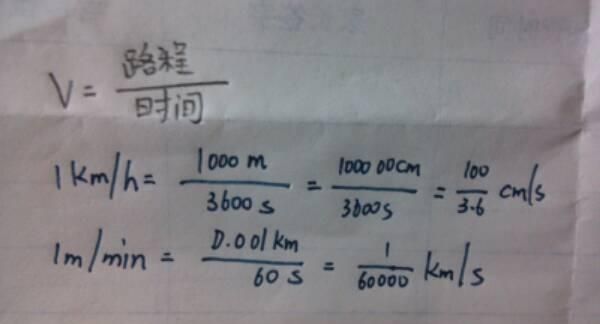 V = 路程/时间
1km/h = 1000 m/3600 s = 1000 00cm/3600s = 100/3.6 cm/s
1m/min = 0.001km/60 s = 1/60000 km/s